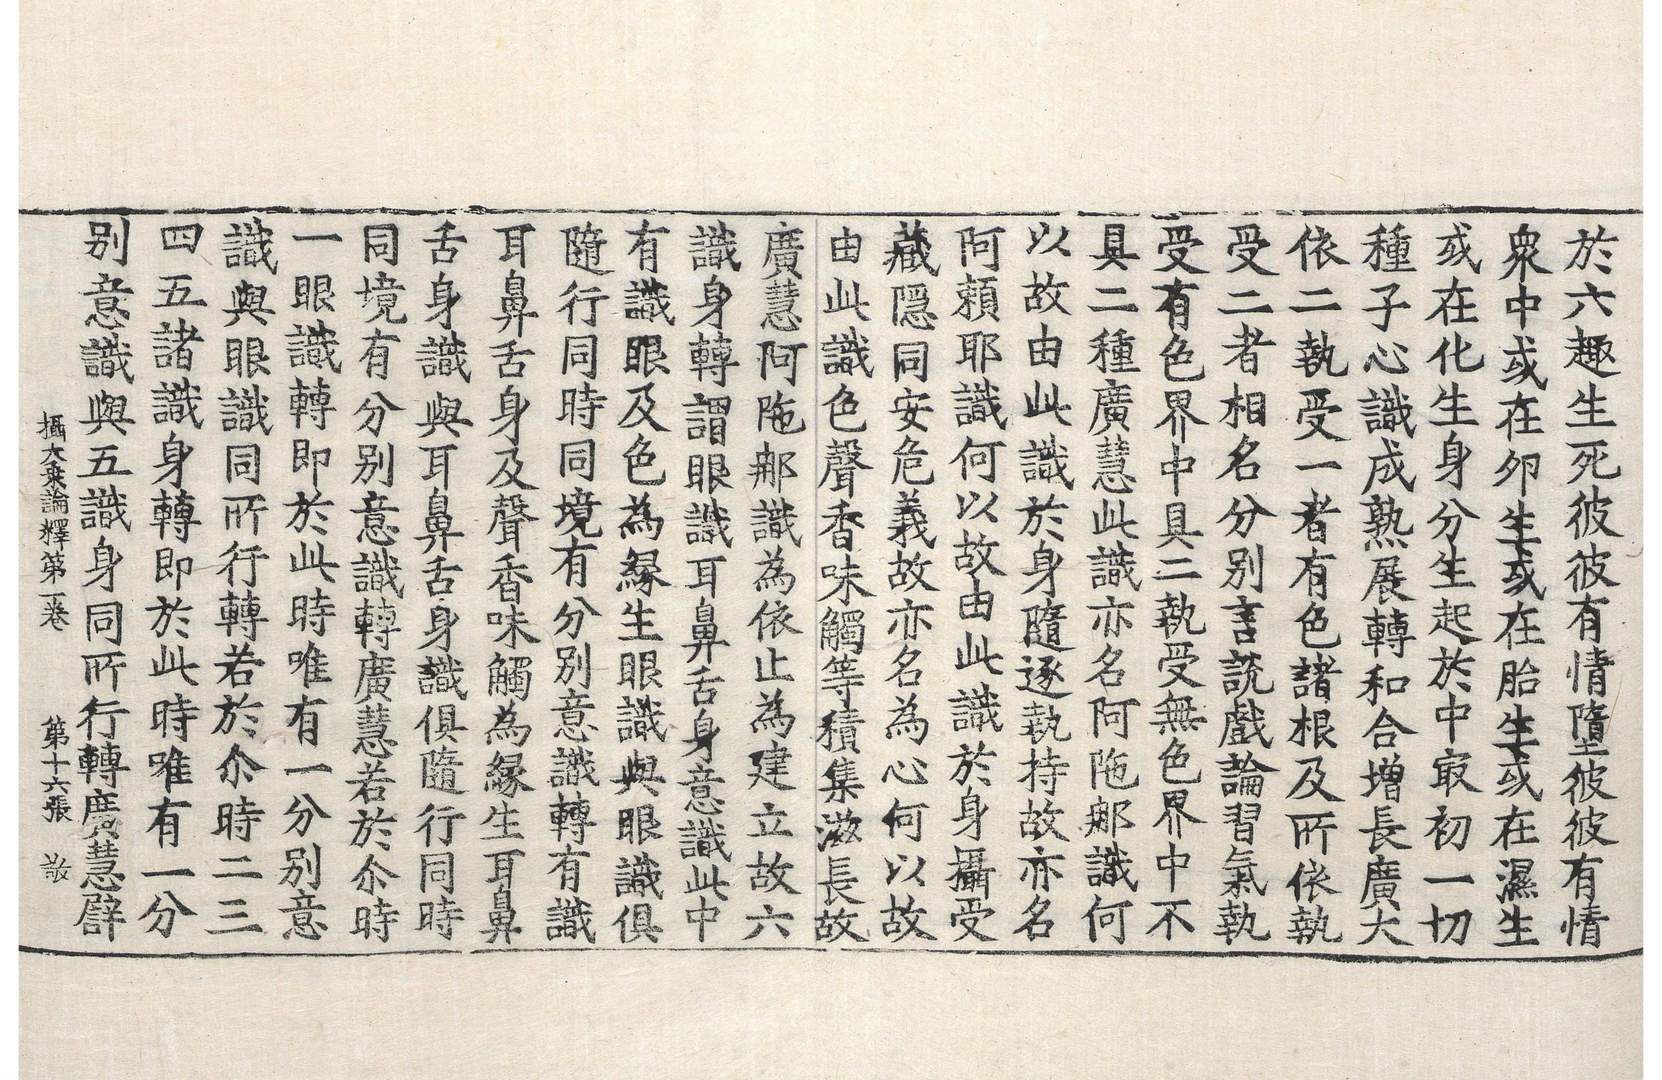 於六趣生死彼彼有情墮彼彼有情
衆中或在卵生或在胎生或在濕生
或在化生身分生起於中㝡初一切
種子心識成熟展轉和合增長廣大
依二執受一者有色諸根及所依執
受二者相名分別言說戲論習氣執
受有色界中具二執受無色界中不
具二種廣慧此識亦名阿陁那識何
以故由此識於身隨逐執持故亦名
阿賴耶識何以故由此識於身攝受
藏隱同安危義故亦名為心何以故
由此識色聲香味觸等積集滋長故
廣慧阿陁那識為依止為建立故六
識身轉謂眼識耳鼻舌身意識此中
有識眼及色為緣生眼識與眼識俱
隨行同時同境有分別意識轉有識
耳鼻舌身及聲香味觸為緣生耳鼻
舌身識與耳鼻舌身識俱隨行同時
同境有分別意識轉廣慧若於尒時
一眼識轉即於此時唯有一分別意
識與眼識同所行轉若於尒時二三
四五諸識身轉即於此時唯有一分
別意識與五識身同所行轉廣慧譬
攝大乘論釋第一卷 第十六張